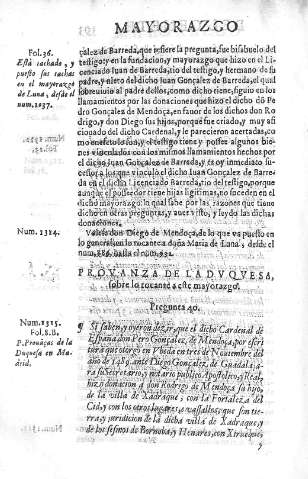 MAYORAZGO
Fol. 36.
Està tachado, y
puesto sus tachas
en el mayorazgo
de Luna, desde el
num. 1237.
çalez de Barreda, que refiere la pregunta, fue bisabuelo del
testigo: y en la fundacion, y mayorazgo que hizo en el Li-
cenciado Iuan de Barreda, tio del testigo, y hermano de su
padre, y nieto del dicho Iuan Gonçalez de Barreda, el qual
sobreuiuio al padre dellos, como dicho tiene, siguio en los
llamamientos por las donaciones que hizo el dicho dõ Pe-
dro Gonçalez de Mendoça, en fauor de los dichos don Ro
drigo, y don Diego sus hijos, porque fue criado, y muy afi
cionado del dicho Cardenal, y le parecieron acertadas, co
mo en efeto lo son, y el testigo tiene y possee algunos bie-
nes vinculados con los mismos llamamientos hechos por
el dicho Iuan Gonçalez de Barreda, y es oy inmediato su-
cessor a los que vinculo el dicho Iuan Gonçalez de Barre-
da en el dicho Licenciado Barreda, tio del testigo, porque
aunque el posseedor tiene hijas legitimas, no suceden en el
dicho mayorazgo: lo qual sabe por las razones que tiene
dicho en otras preguntas, y auer visto, y leydo las dichas
donaciones.
Num. 1314.
Valese don Diego de Mendoça, de lo que va puesto en
lo general en lo tocante a doña Maria de Luna, desde el
num. 886. hasta el num. 932.
PROVANZA DE LA DVQVESA,
sobre lo tocante a este mayorazgo.
Pregunta 40.
Num. 1315.
Fol. 8. B.
P. Prouãças de la
Duquesa en Ma-
drid.
Si saben, y oyeron dezir, que el dicho Cardenal de
España don Pero Gonçalez de Mendoça, por escri
tura que otorgò en Pueda en tres de Nouiembre del
año de 1489. ante Diego Gonçalez de Guadalaja-
ra su Secretario, y notario publico, Apostolico, y Real,
hizo donacion a don Rodrigo de Mendoça su hijo,
de la villa de Xadraque, y con la Fortaleza del
Cid, y con los otros lugares, e vassallos, que son tier-
ras, y juridicion de la dicha villa de Xadraque, y
de los sesmos de Bornoba, y Henares, con Xirueque
y